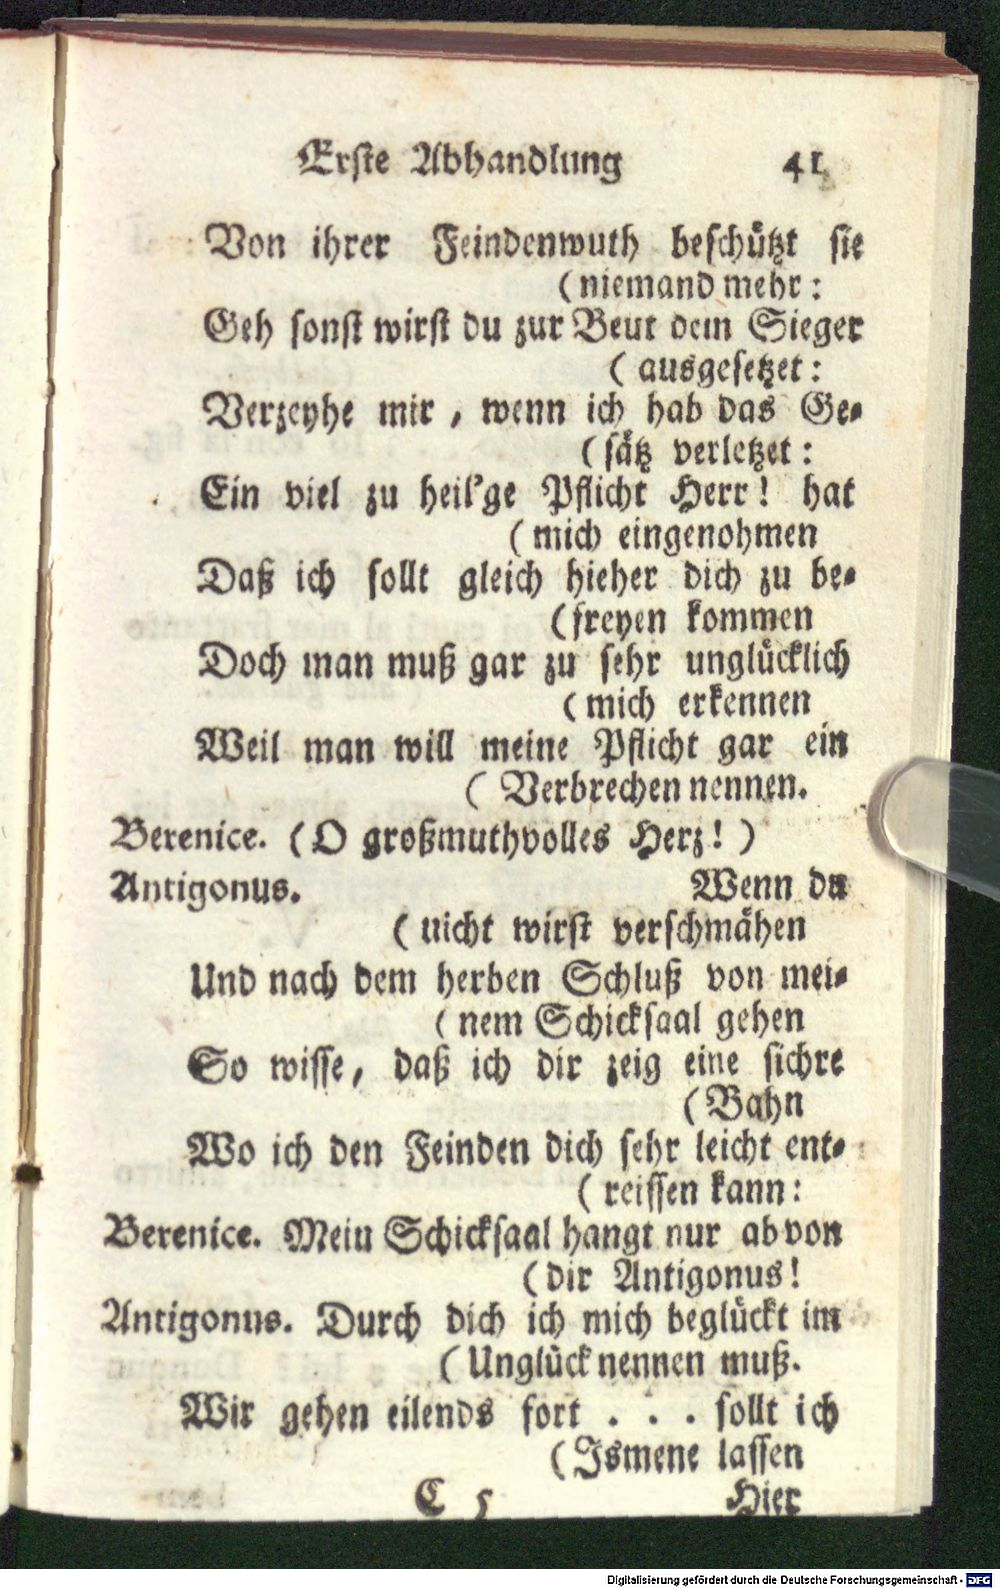 Erste Abhandlung 41
Von ihrer Feindenwuth beschützt sie
(niemand mehr:
Geh sonst wirst du zur Beut dem Sieger
( ausgesetzet:
Verzeyhe mir, wenn ich hab das Ge-
(sätz verletzet:
Ein viel zu heil'ge Pflicht Herr! hat
(mich eingenohmen
Daß ich sollt gleich hieher dich zu be-
(freyen kommen
Doch man muß gar zu sehr unglücklich
(mich erkennen
Weil man will meine Pflicht gar ein
( Verbrechen nennen.
Berenice. (O großmuthvolles Herz!)
Antigonus. Wenn du
( nicht wirst verschmähen
Und nach dem herben Schluß von mei-
(nem Schicksaal gehen
So wisse, daß ich dir zeig eine sichre
(Bahn
Wo ich den Feinden dich sehr leicht ent-
( reissen kann:
Berenice. Mein Schicksaal hangt nur ab von
(dir Antigonus!
Antigonus. Durch dich ich mich beglückt im
(Unglück nennen muß.
Wir gehen eilends fort . . . sollt ich
(Ismene lassen
C 5 Hier
Digitalisierung gefördert durch die Deutsche Forschungsgemeinschaft - DFG